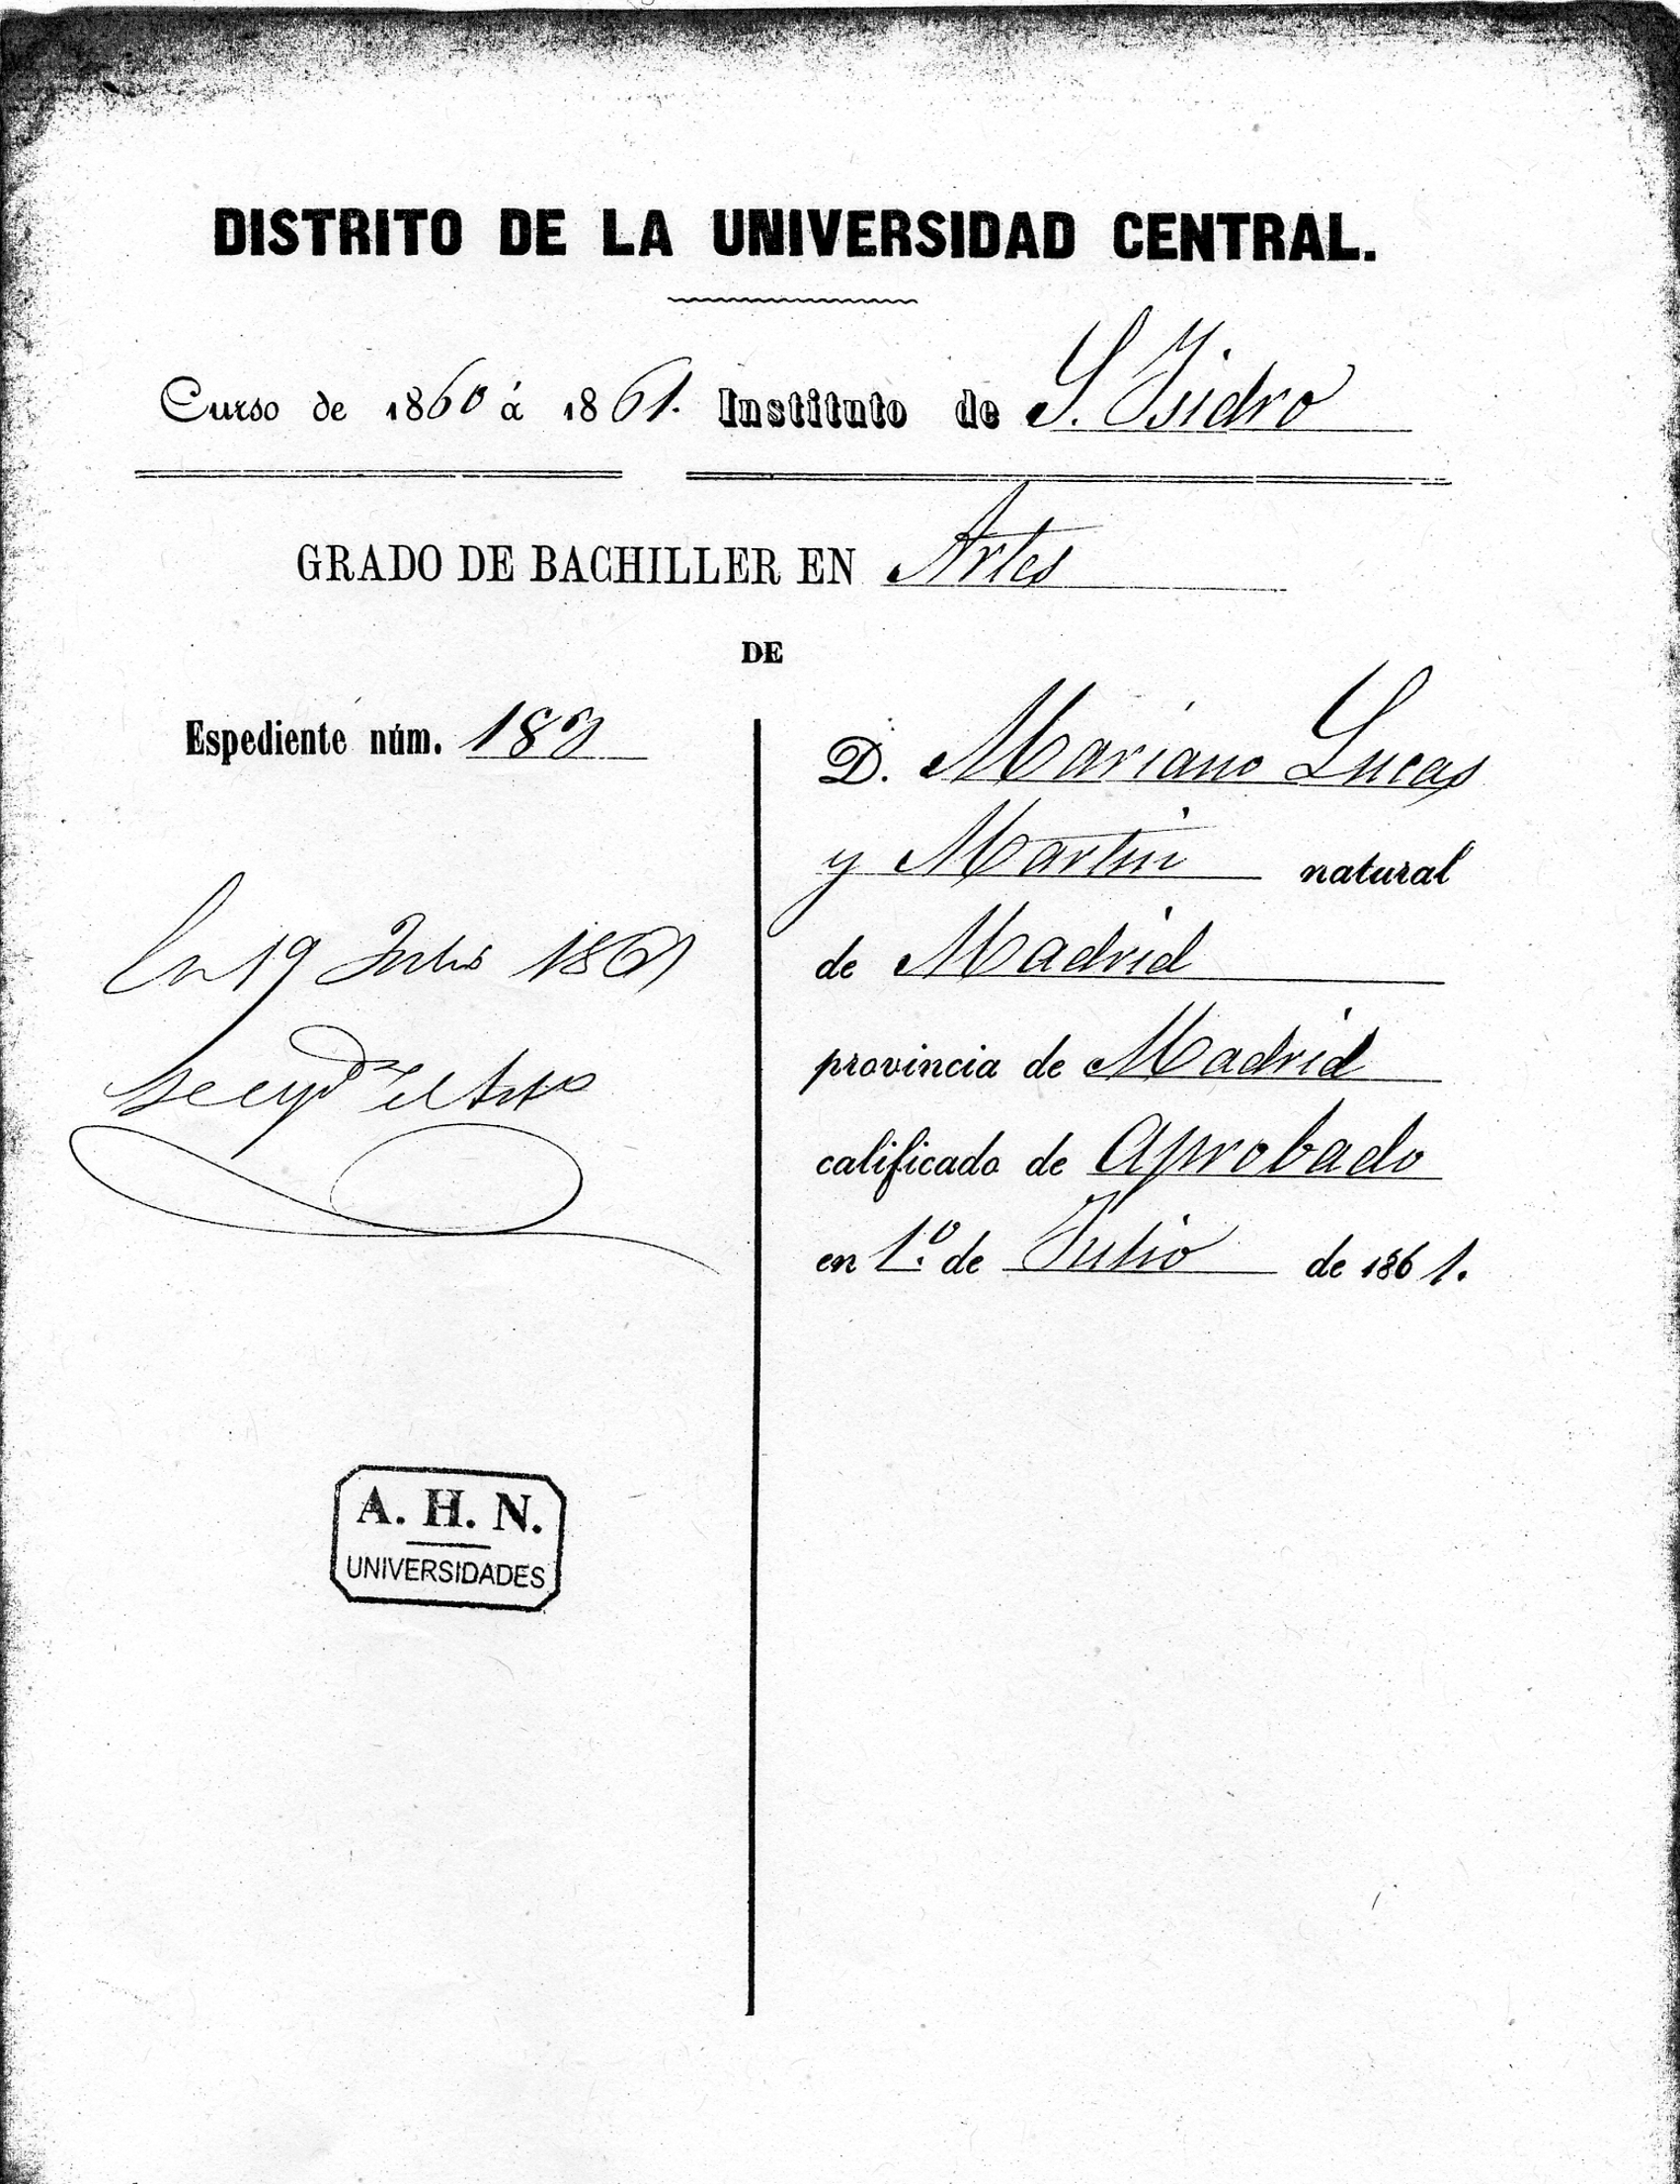 DISTRITO DE LA UNIVERSIDAD CENTRAL.
Curso de 1860 á 1861. Instituto de S. Isidro
GRADO DE BACHILLER EN Artes
DE
Espediente núm.
D. Mariano Lucas
y Martin natural
de Madrid
provincia de Madrid
calificado de Aprobado
en 1.º de Julio de 1861.
En 19 Julio 1861
A. H. N.
UNIVERSIDADES